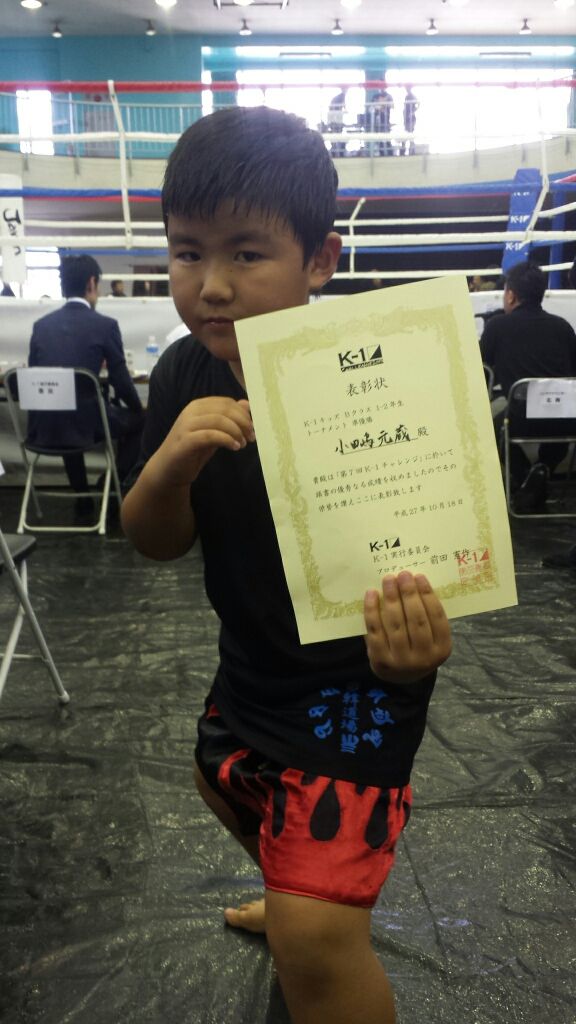 K-1
CHALLENGE
表彰状
K-1キッズ Bクラス 1-2年生
トーナメント 準優勝
小田嶋 元蔵 殿
貴殿は「第7回K-1チャレンジ」に於いて
頭書の優秀なる成績を収めましたのでその
栄誉を讃えここに表彰致します
平成27年10月18日
K-1
K-1実行委員会
プロデューサー 前田 憲作
K-1
K-1